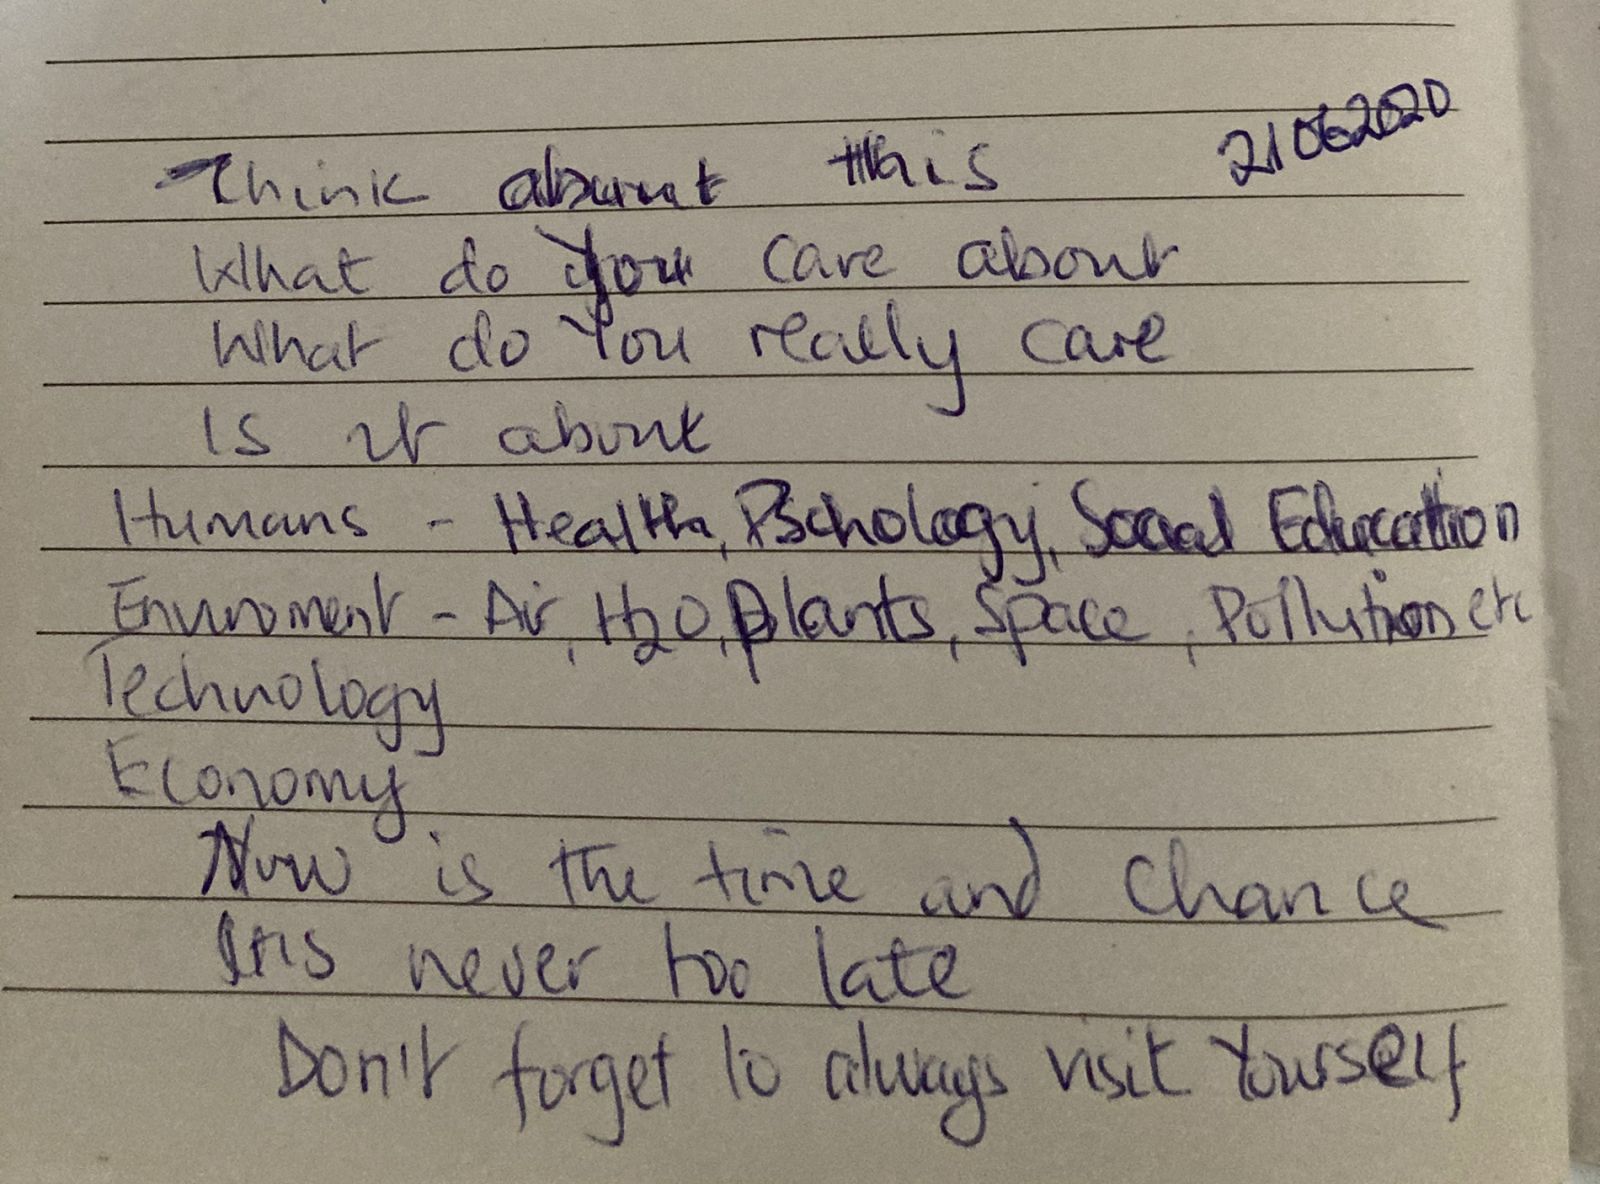 Think about this 21 06 2020
What do you care about
What do You really care
Is it about
Humans - Health, Pschology, Social Education
Enviroment - Air, H2O, plants, Space, Pollution etc
Technology
Economy
Now is the time and Chance
It is never too late
Don't forget to always visit Yourself